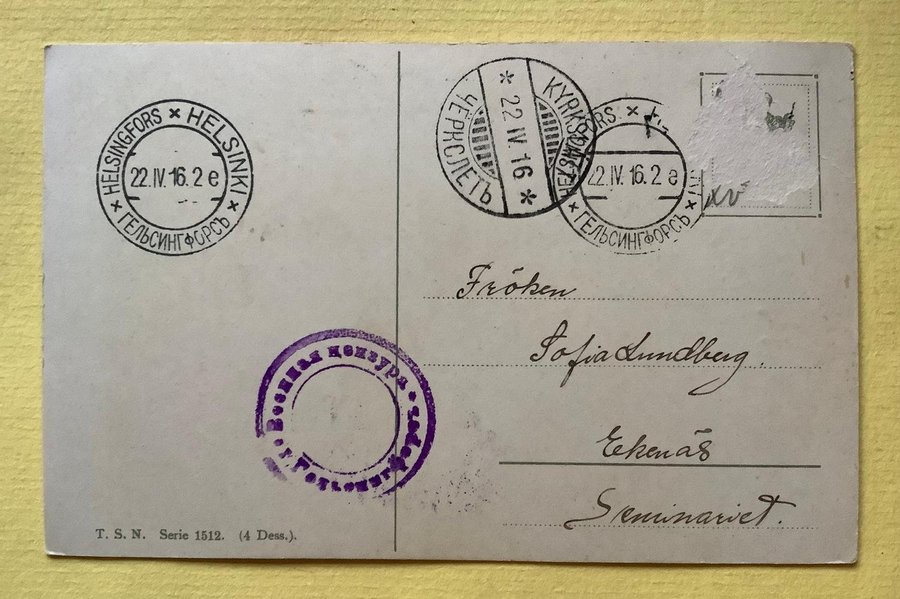 HELSINGFORS × HELSINKI × ГЕЛЬСИНГФОРСЪ ×
22.IV.16.2 e
KYRKS
* 22 IV. 16 *
ЧЕРКСЛЕТЬ
HELSINGFORS × × ГЕЛЬСИНГФОРСЪ ×
22.IV.16.2 e
Fröken
Sofia Lundberg.
Ekenäs
Seminariet.
Военная цензура
T. S. N. Serie 1512. (4 Dess.).